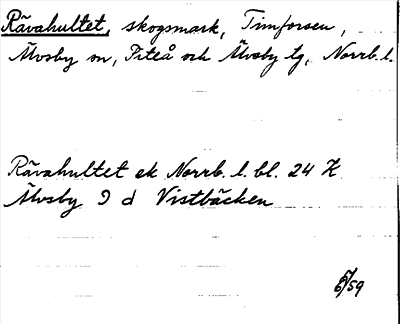 Rävahultet, skogsmark, Timforsen,
Älvsby sn, Piteå och Älvsby tg, Norrb. l.
Rävahultet ek Norrb. l. bl. 24 K
Älvsby 9 d Vistbäcken